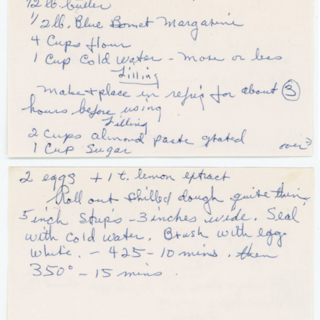 1/2 lb. butter
1/2 lb. Blue Bonnet Margarine
4 Cups flour
1 Cup Cold Water - More or less
Filling
Make & place in refrig for about 3
hours before using
Filling
2 Cups almond paste grated
1 Cup Sugar over
2 eggs + 1 t. lemon extract
Roll out chilled dough quite thin,
5 inch strips - 3 inches wide. Seal
with cold water. Brush with egg
white. - 425 - 10 mins. then
350° - 15 mins.